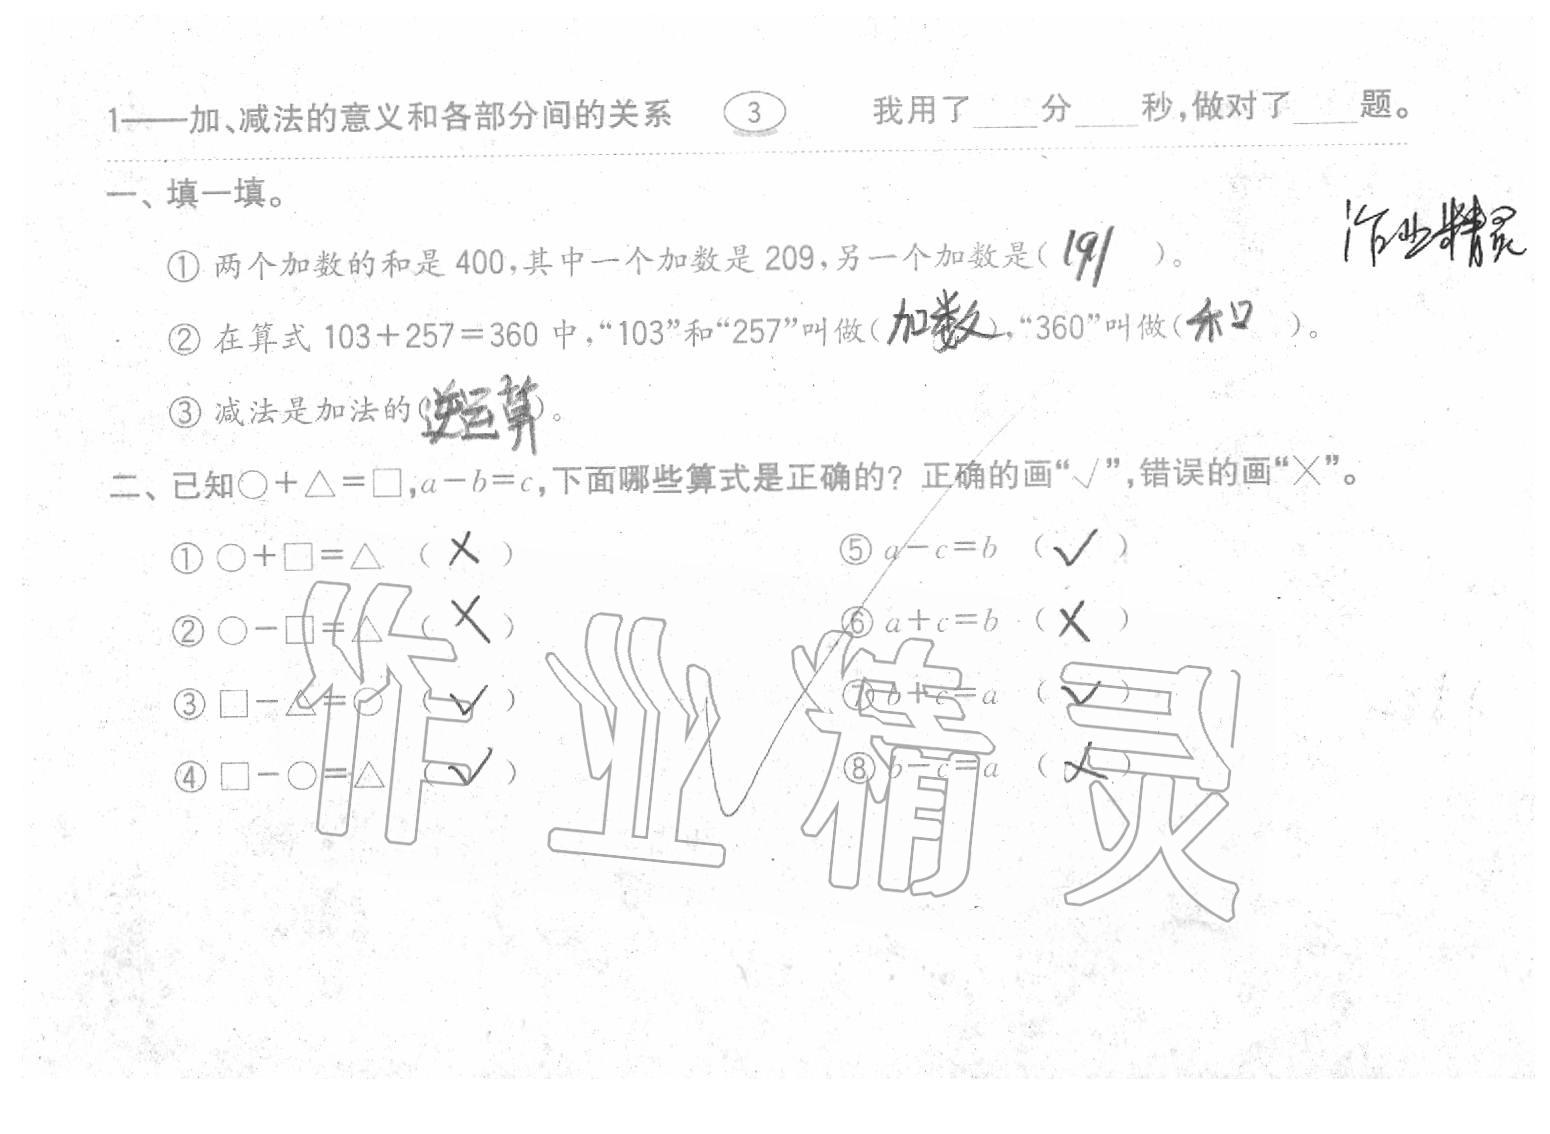 1——加、减法的意义和各部分间的关系 3 我用了____分____秒,做对了____题。
一、填一填。
作业精灵
① 两个加数的和是 400,其中一个加数是 209,另一个加数是( 191 )。
② 在算式 103+257=360 中,“103”和“257”叫做(加数),“360”叫做(和)。
③ 减法是加法的(逆运算)。
二、已知○+△=□,a-b=c,下面哪些算式是正确的? 正确的画“√”,错误的画“×”。
① ○+□=△ ( × ) ⑤ a-c=b ( √ )
② ○-□=△ ( × ) ⑥ a+c=b ( × )
③ □-△=○ ( √ ) ⑦ b+c=a ( √ )
④ □-○=△ ( √ ) ⑧ b-c=a ( × )
作业精灵